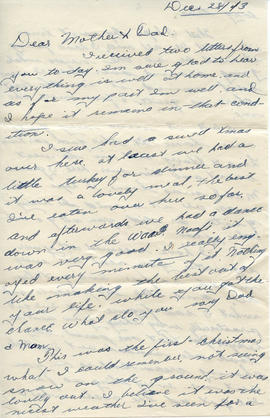 Dec 28/43
Dear Mother & Dad.
I received two letters from
you to-day. I'm sure glad to hear
everything is well at home, and
as for my part I'm well, and
I hope it remains in that cond-
ition.
I sure had a swell Xmas
over here, at least we had a
little turkey for dinner and
it was a lovely meal, the best
I've eaten over here so far,
and afterwards we had a dance
down in the Naafi, it
was very good. I really enj-
oyed every minute of it. Nothing
like making the best out of
your life, while you got the
chance. What do you say Dad
& Mom.
This was the first Christmas
what I could remember not seeing
snow on the ground, it was
lovely out. I believe it was the
nicest weather I've seen for a